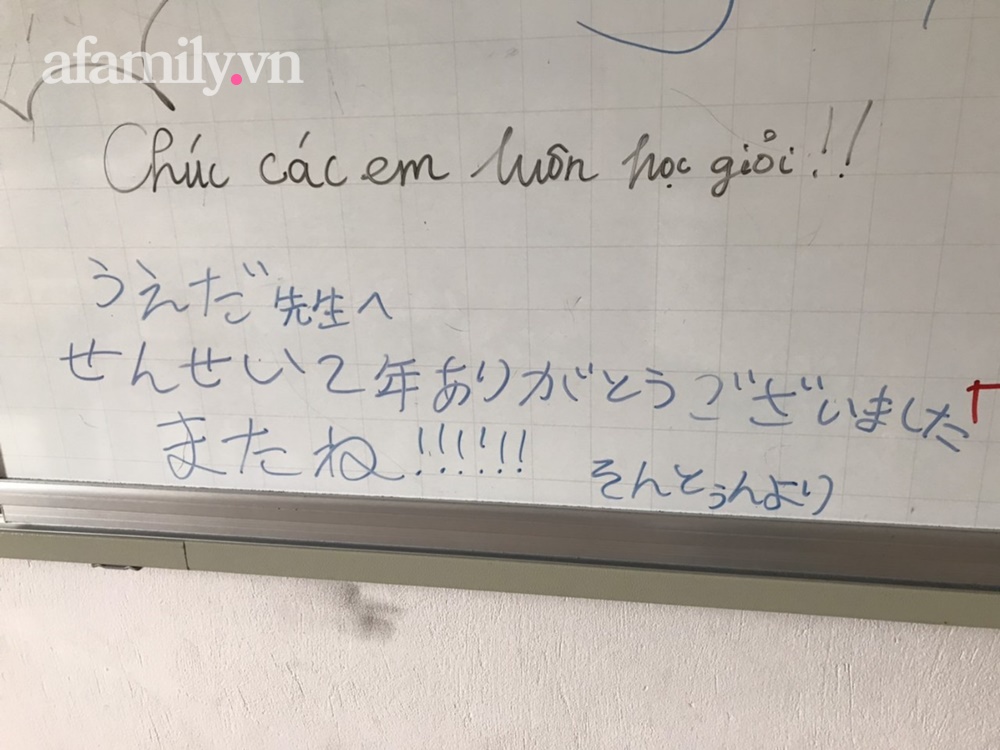 afamily.vn
Chúc các em luôn học giỏi!!
うえだ先生へ
せんせい2年ありがとうございました
またね!!!!!!
そんとぅんより